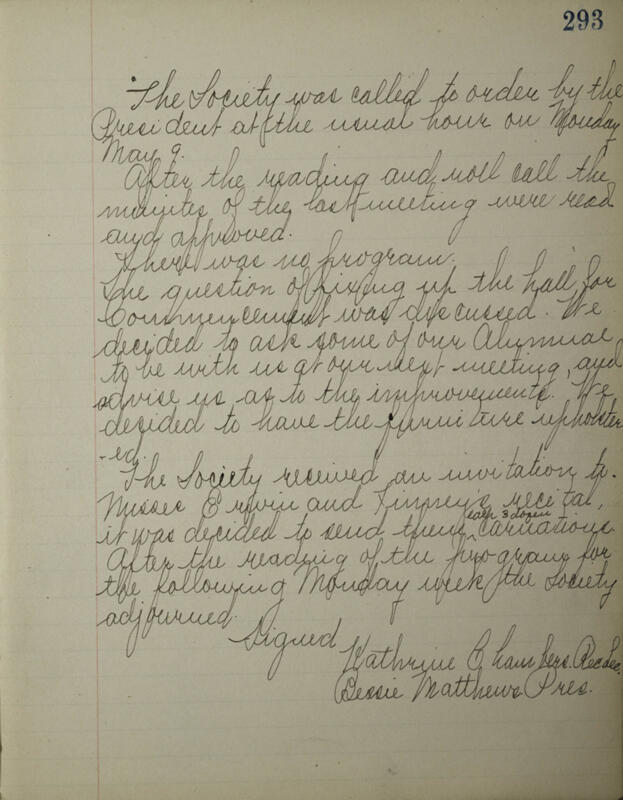 293
The Society was called to order by the
President at the usual hour on Monday
May 9.
After the reading and roll call the
minutes of the last meeting were read
and approved.
There was no program.
The question of fixing up the hall for
Commencement was discussed. We
decided to ask some of our Alumnae
to be with us at our next meeting, and
advise us as to the improvements. We
decided to have the furniture upholster
-ed.
The Society received an invitation to
Misses Ervin and Finney's recital,
each 3 dozen
it was decided to send them ^ carnations
After the reading of the program for
the following Monday week the Society
adjourned.
Signed
Kathrine Chambers. Rec Sec.
Bessie Matthews Pres.